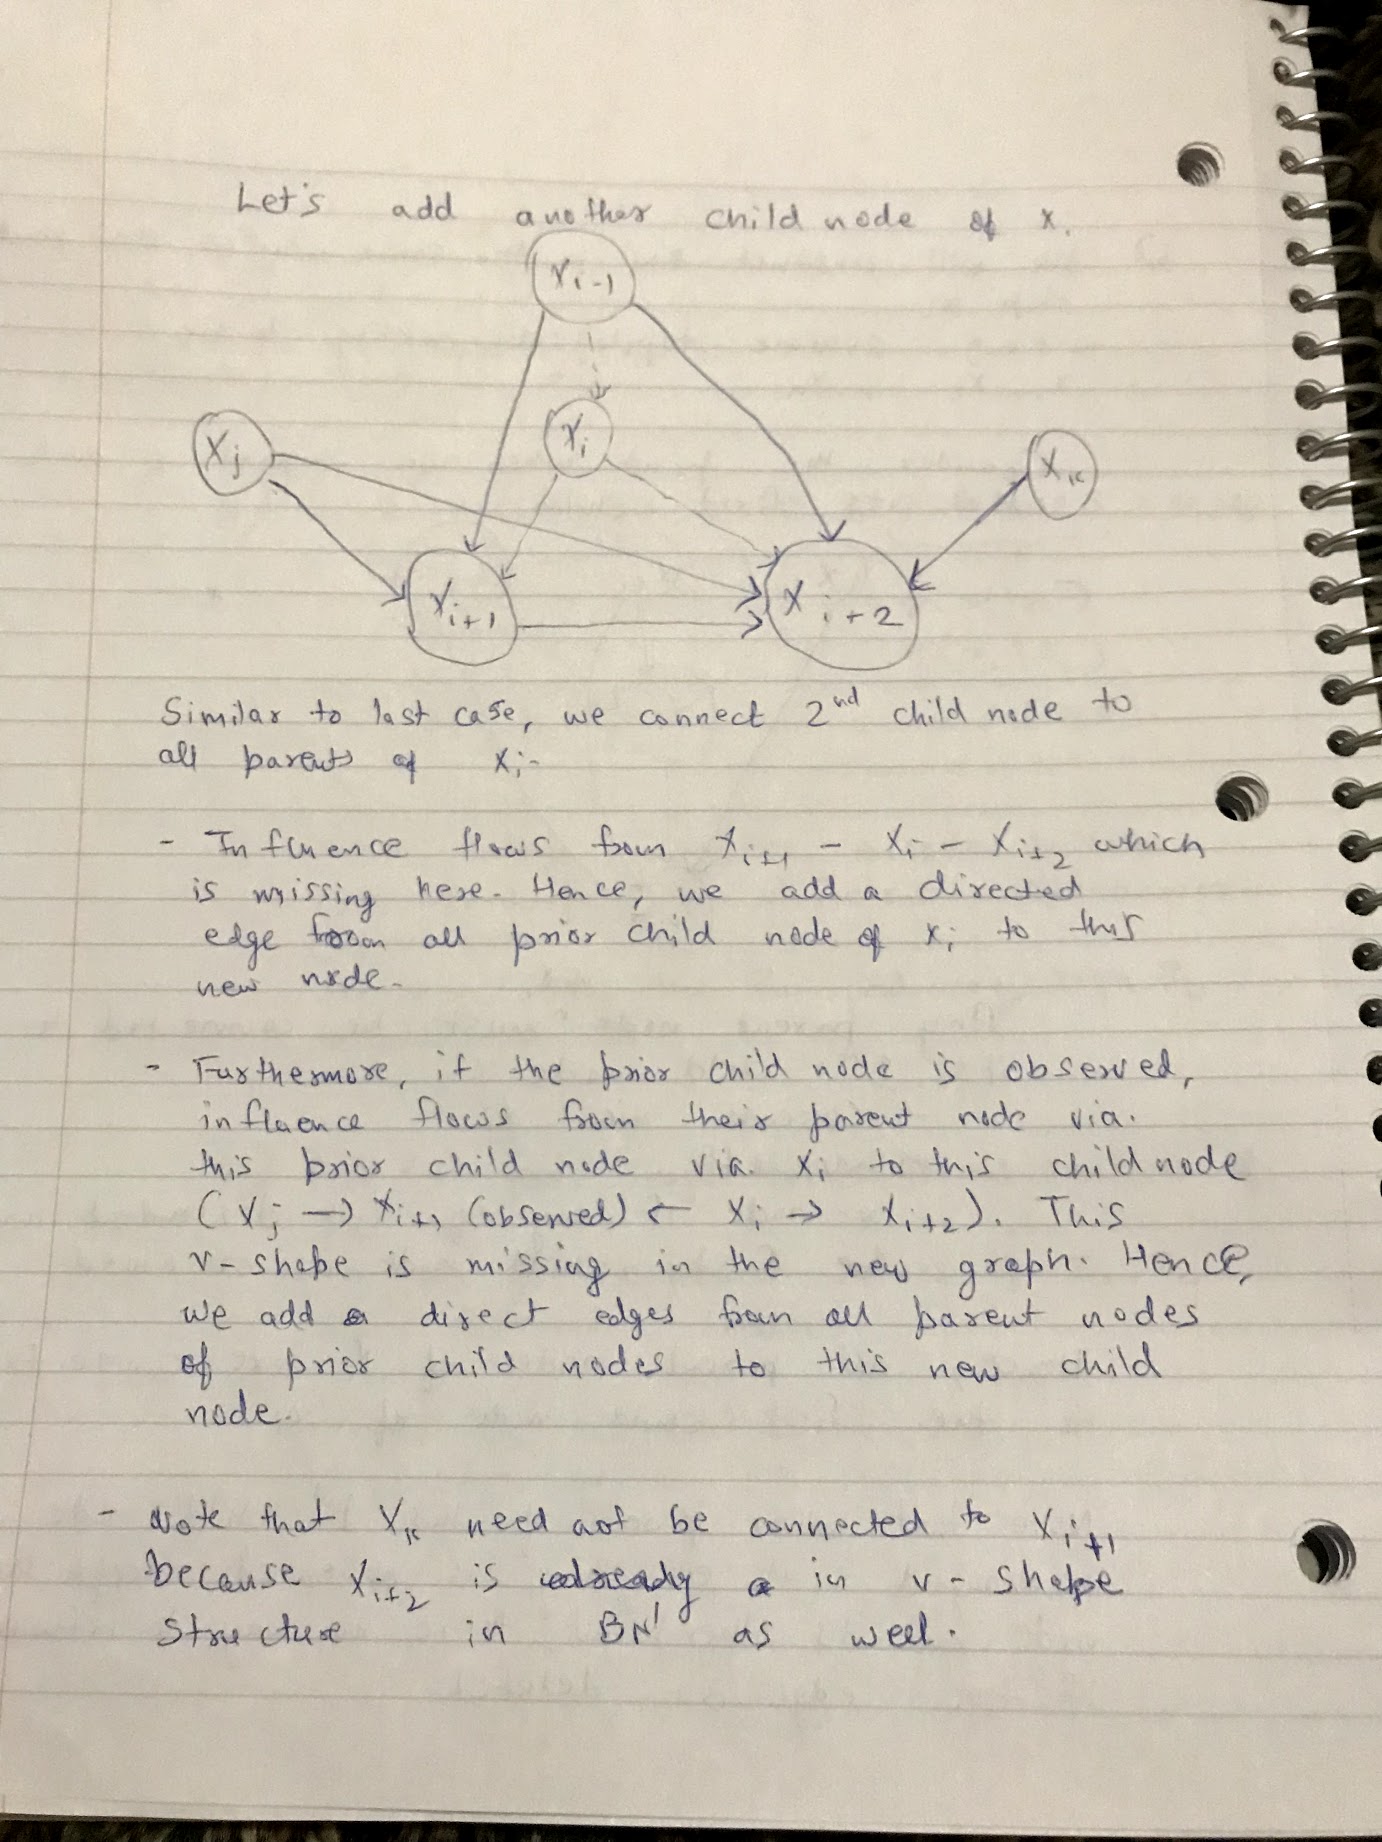 Let's add another child node of x.
Xi-1
Xj
Xi
XK
Xi+1
Xi+2
Similar to last case, we connect 2nd child node to
all parents of Xi.
- Influence flows from Xi+1 - Xi - Xi+2 which
is missing here. Hence, we add a directed
edge from all prior child node of Xi to this
new node.
- Furthermore, if the prior child node is observed,
influence flows from their parent node via.
this prior child node via. Xi to this child node
(Xj → Xi+1 (observed) ← Xi → Xi+2). This
v-shape is missing in the new graph. Hence,
we add direct edges from all parent nodes
of prior child nodes to this new child
node.
- Note that XK need not be connected to Xi+1
because Xi+2 is already a in v-shape
structure in BN' as well.